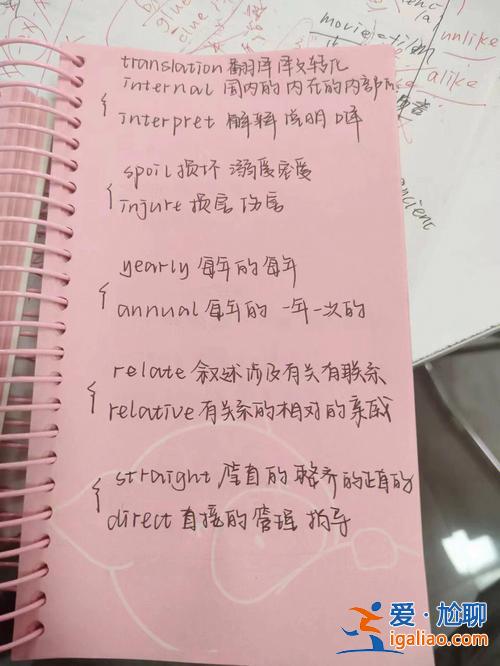 movie
unlike
alike
ancient
translation 翻译 译文 转化
internal 国内的 内在的 内部的
interpret 解释 说明 口译
spoil 损坏 溺爱 宠爱
injure 损害 伤害
yearly 每年的 每年
annual 每年的 一年一次的
relate 叙述 涉及 有关 有联系
relative 有关系的 相对的 亲戚
straight 笔直的 整齐的 正直的
direct 直接的 管理 指导
爱·尬聊
igaliao.com